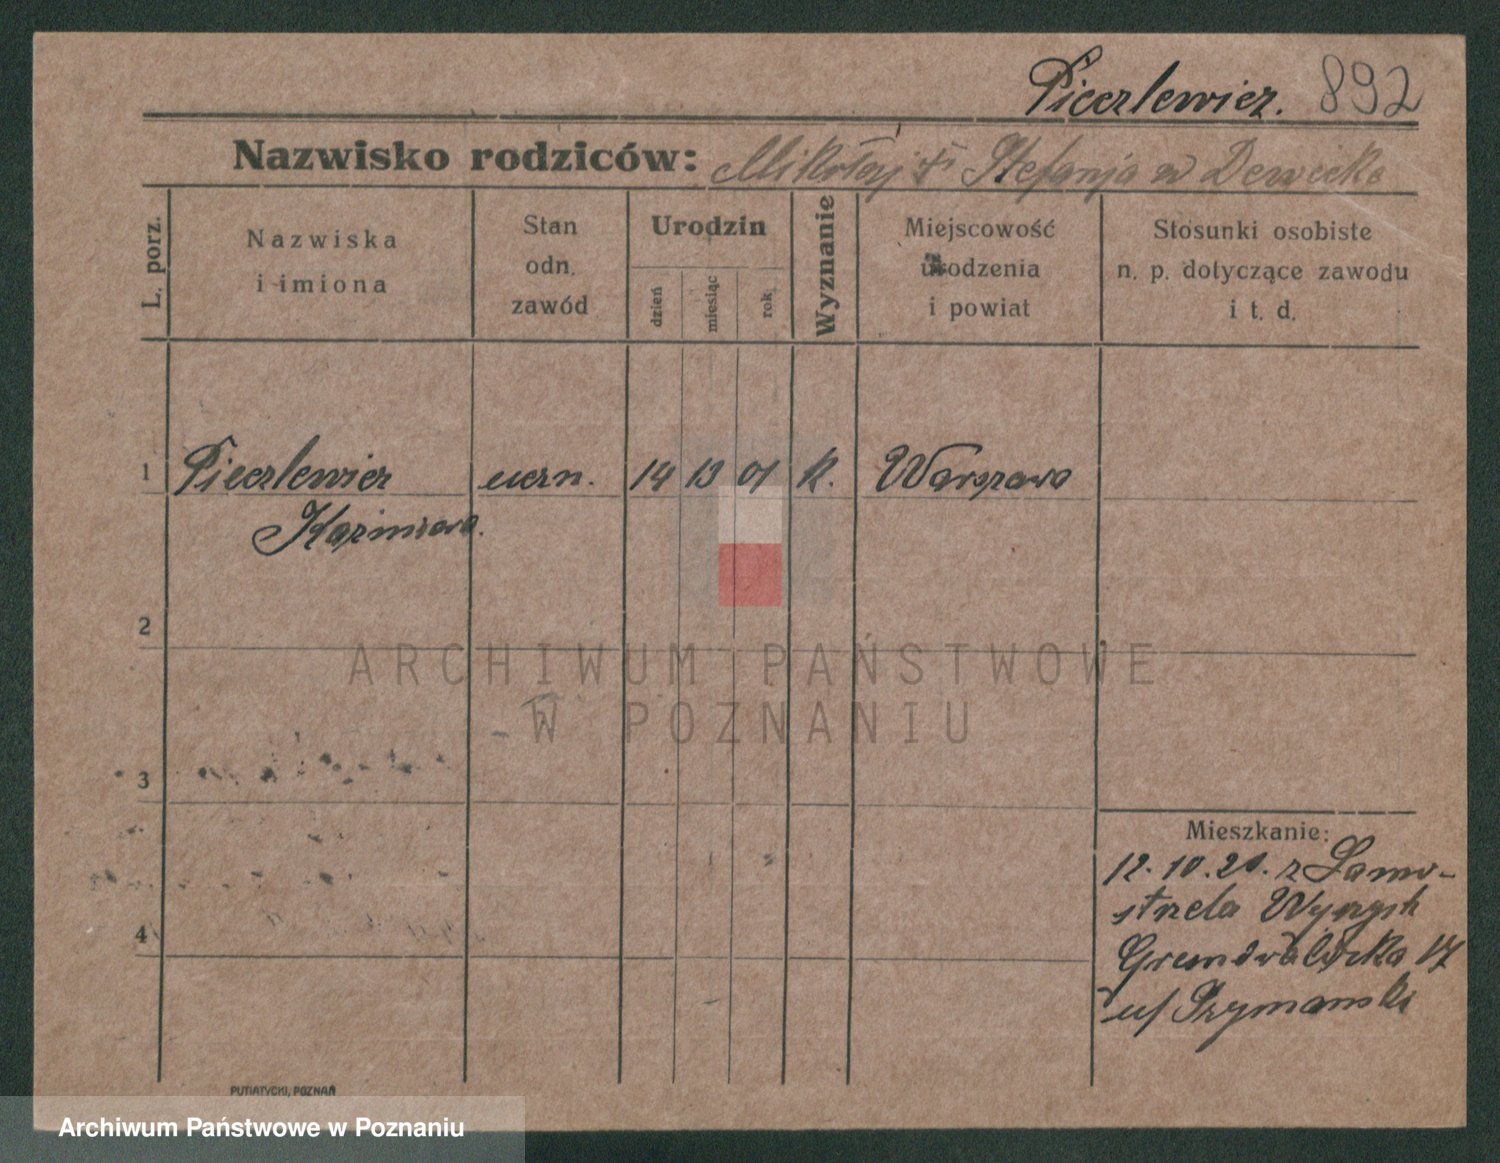 Pieczlewicz. 892
Nazwisko rodziców: Mikołaj i Stefanja z Dewicka
L. porz.
Nazwiska
i imiona
Stan
odn.
zawód
Urodzin
dzień
miesiąc
rok
Wyznanie
Miejscowość
urodzenia
i powiat
Stosunki osobiste
n. p. dotyczące zawodu
i t. d.
1 Pieczlewicz uczn. 14 12 01 k. Warszawa
Kazimiera.
2
ARCHIWUM PAŃSTWOWE
W POZNANIU
3
4
Mieszkanie:
12.10.21. z Samo-
strzela Wyrzysk
Grunwaldzka 17
u/ Szymanski
PUTIATYCKI, POZNAŃ
Archiwum Państwowe w Poznaniu